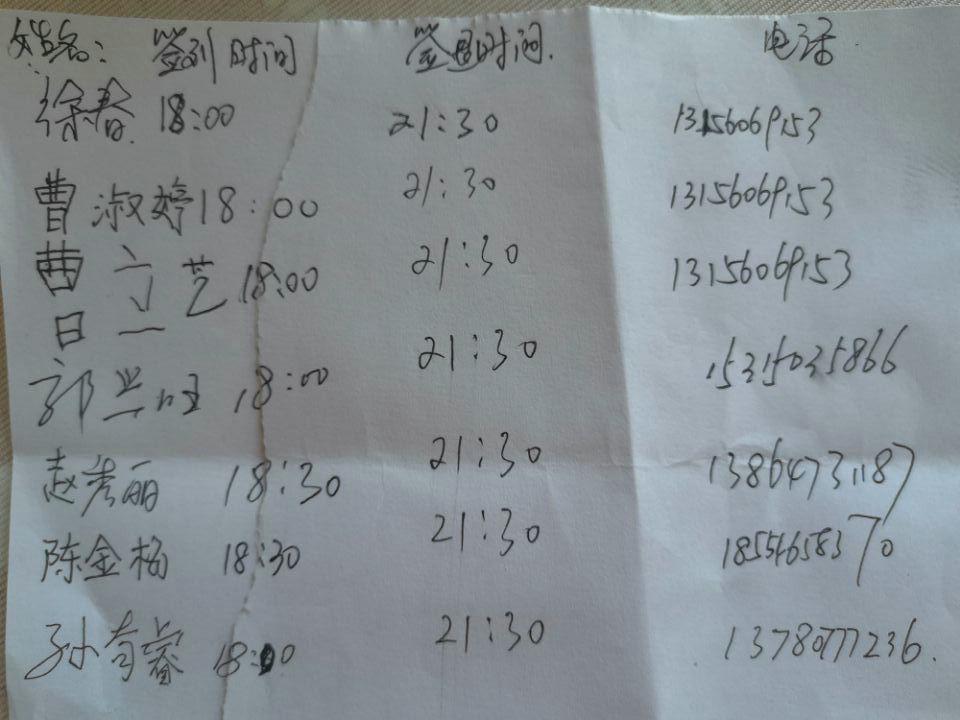 姓名: 签到时间 签退时间. 电话
徐春 18:00 21:30 13156069153
曹淑婷 18:00 21:30 13156069153
曹立艺 18:00 21:30 13156069153
郭兴旺 18:00 21:30 15315035866
赵秀丽 18:30 21:30 13864731187
陈金杨 18:30 21:30 18554658370
孙奇睿 18:00 21:30 13780777236.